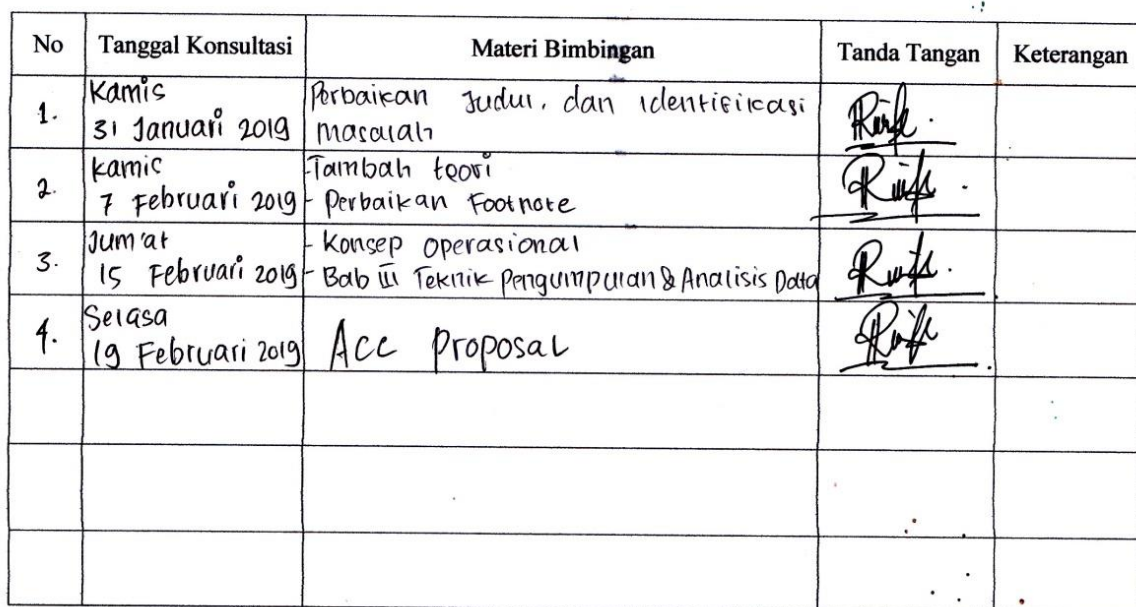 No Tanggal Konsultasi Materi Bimbingan Tanda Tangan Keterangan
1. Kamis
31 Januari 2019
Perbaikan Judul, dan identifikasi
masalah
2. Kamis
7 Februari 2019
- Tambah teori
- Perbaikan Footnote
3. Jum'at
15 Februari 2019
- Konsep operasional
- Bab III Teknik Pengumpulan & Analisis Data
4. Selasa
19 Februari 2019
Acc Proposal